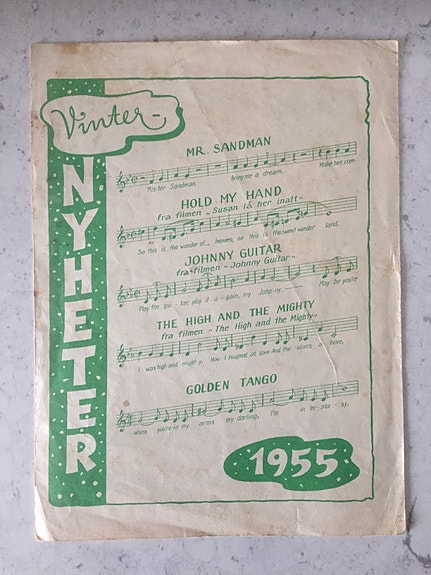 Vinter-
NYHETER
MR. SANDMAN
Mister Sandman bring me a dream, Make her com-
HOLD MY HAND
fra filmen „Susan is her inatt"
So this is the wonder of heaven, so this is the sweet wonder land.
JOHNNY GUITAR
fra filmen „Johnny Guitar"
Play the gui- tar, play it a- gain, my John-ny, May be you're
THE HIGH AND THE MIGHTY
fra filmen „The High and the Mighty"
I was high and might-y, How I laughed at love And the stars a- bove,
GOLDEN TANGO
When you're in my arms my darling, I'm in
1955